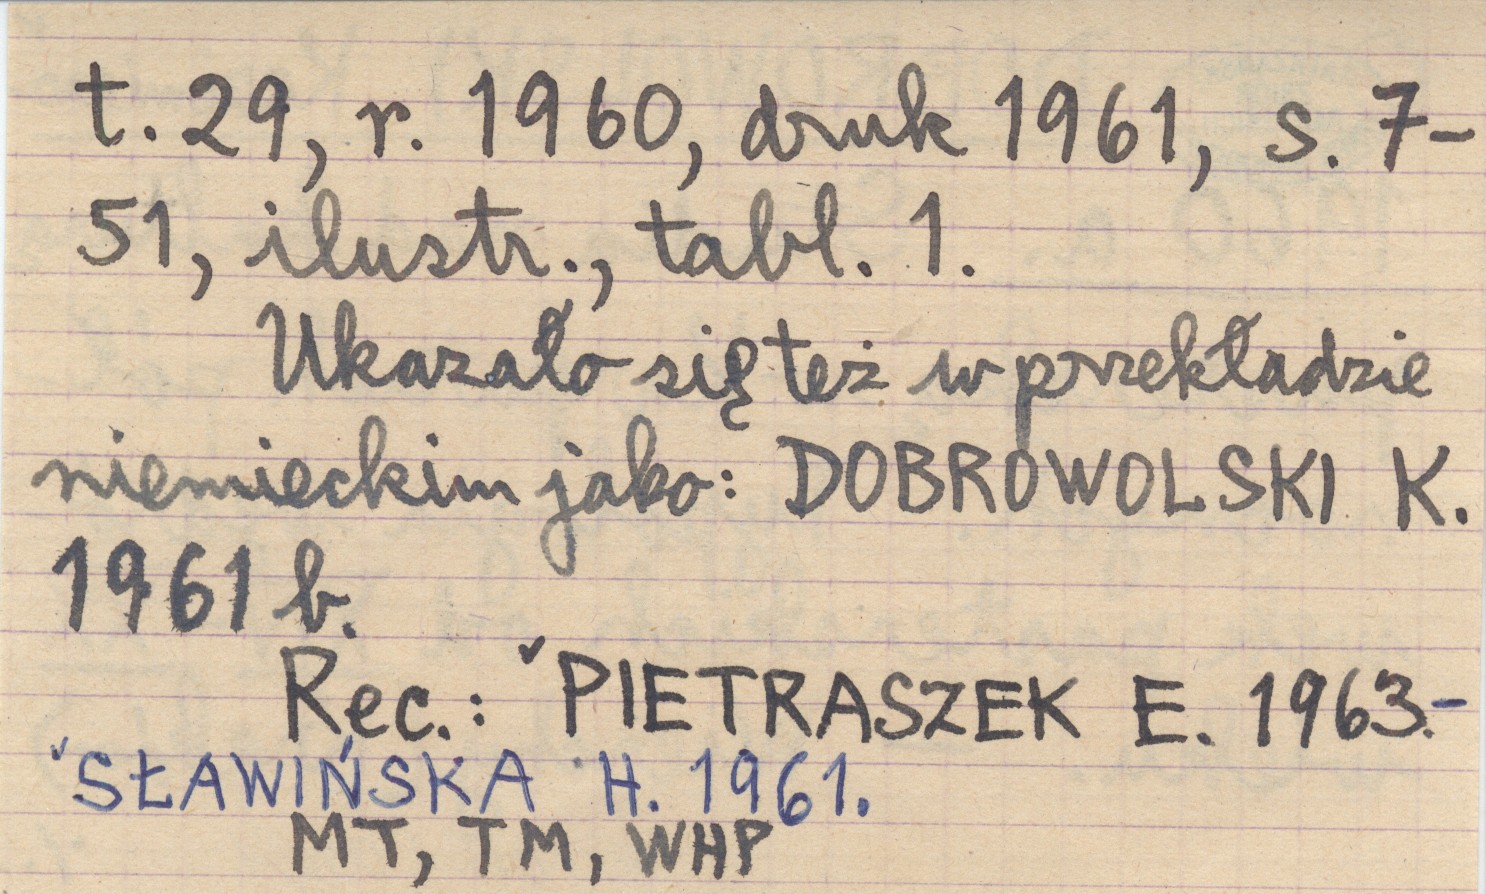 t. 29, r. 1960, druk 1961, s. 7-
51, ilustr., tabl. 1.
Ukazało się też w przekładzie
niemieckim jako: DOBROWOLSKI K.
1961 b.
Rec.: ✓PIETRASZEK E. 1963.-
✓SŁAWIŃSKA H. 1961.
MT, TM, WHP